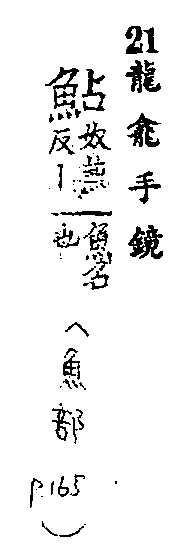 21 龍龕手鏡
鮎奴兼反丨魚名也
(魚部 p.165)